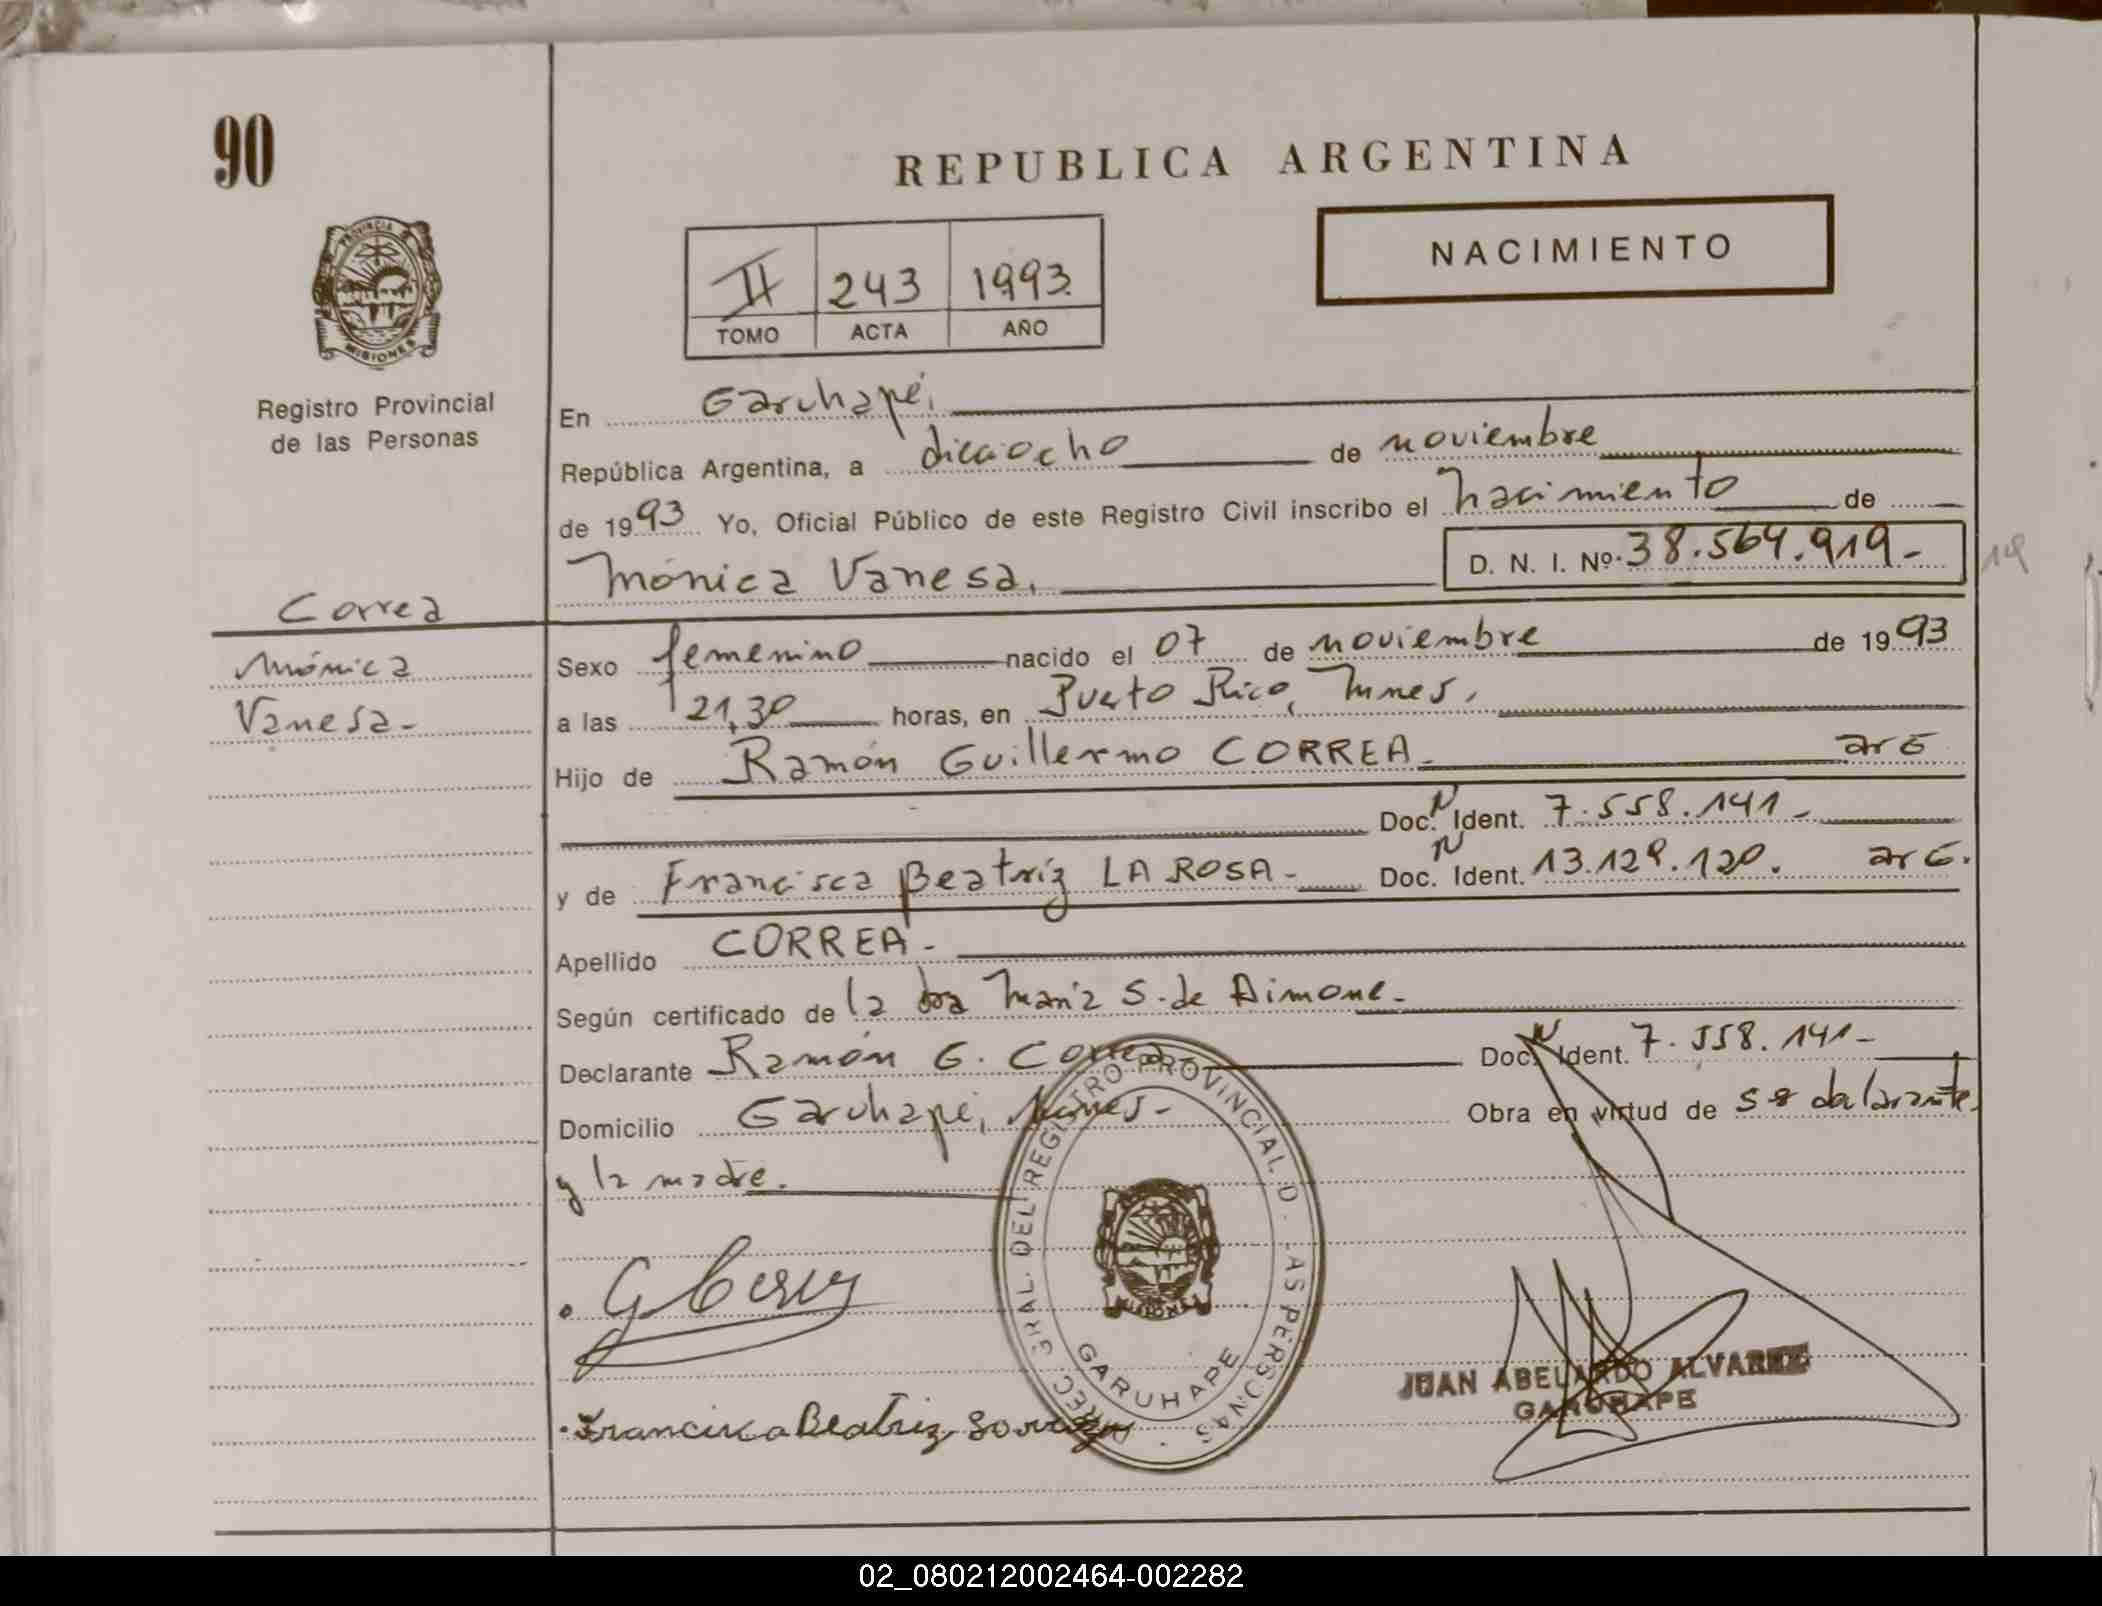 90
REPUBLICA ARGENTINA
NACIMIENTO
II 243 1993
TOMO ACTA AÑO
PROVINCIA D
MISIONES
Registro Provincial
de las Personas
En Garuhapé,
República Argentina, a dieciocho de noviembre
de 1993 Yo, Oficial Público de este Registro Civil inscribo el nacimiento de
Mónica Vanesa. D. N. I. Nº 38.564.919- 19
Correa
Mónica
Vanesa-
Sexo femenino nacido el 07 de noviembre de 1993
a las 21,30 horas, en Puerto Rico, Mnes.
Hijo de Ramón Guillermo CORREA- arG
Doc. N Ident. 7.558.141-
y de Francisca Beatríz LA ROSA- Doc. N Ident. 13.129.120. arG.
Apellido CORREA-
Según certificado de la dra María S. de Aimone-
Declarante Ramón G. Correa- Doc. N Ident. 7.558.141-
Domicilio Garuhapé, Mnes- Obra en virtud de ser
y la madre.
DIREC. GRAL. DEL REGISTRO PROVINCIAL D. LAS PERSONAS
MISIONES
GARUHAPE
Francisca Beatriz
JUAN ABELARDO ALVAREZ
GARUHAPE
02_080212002464-002282